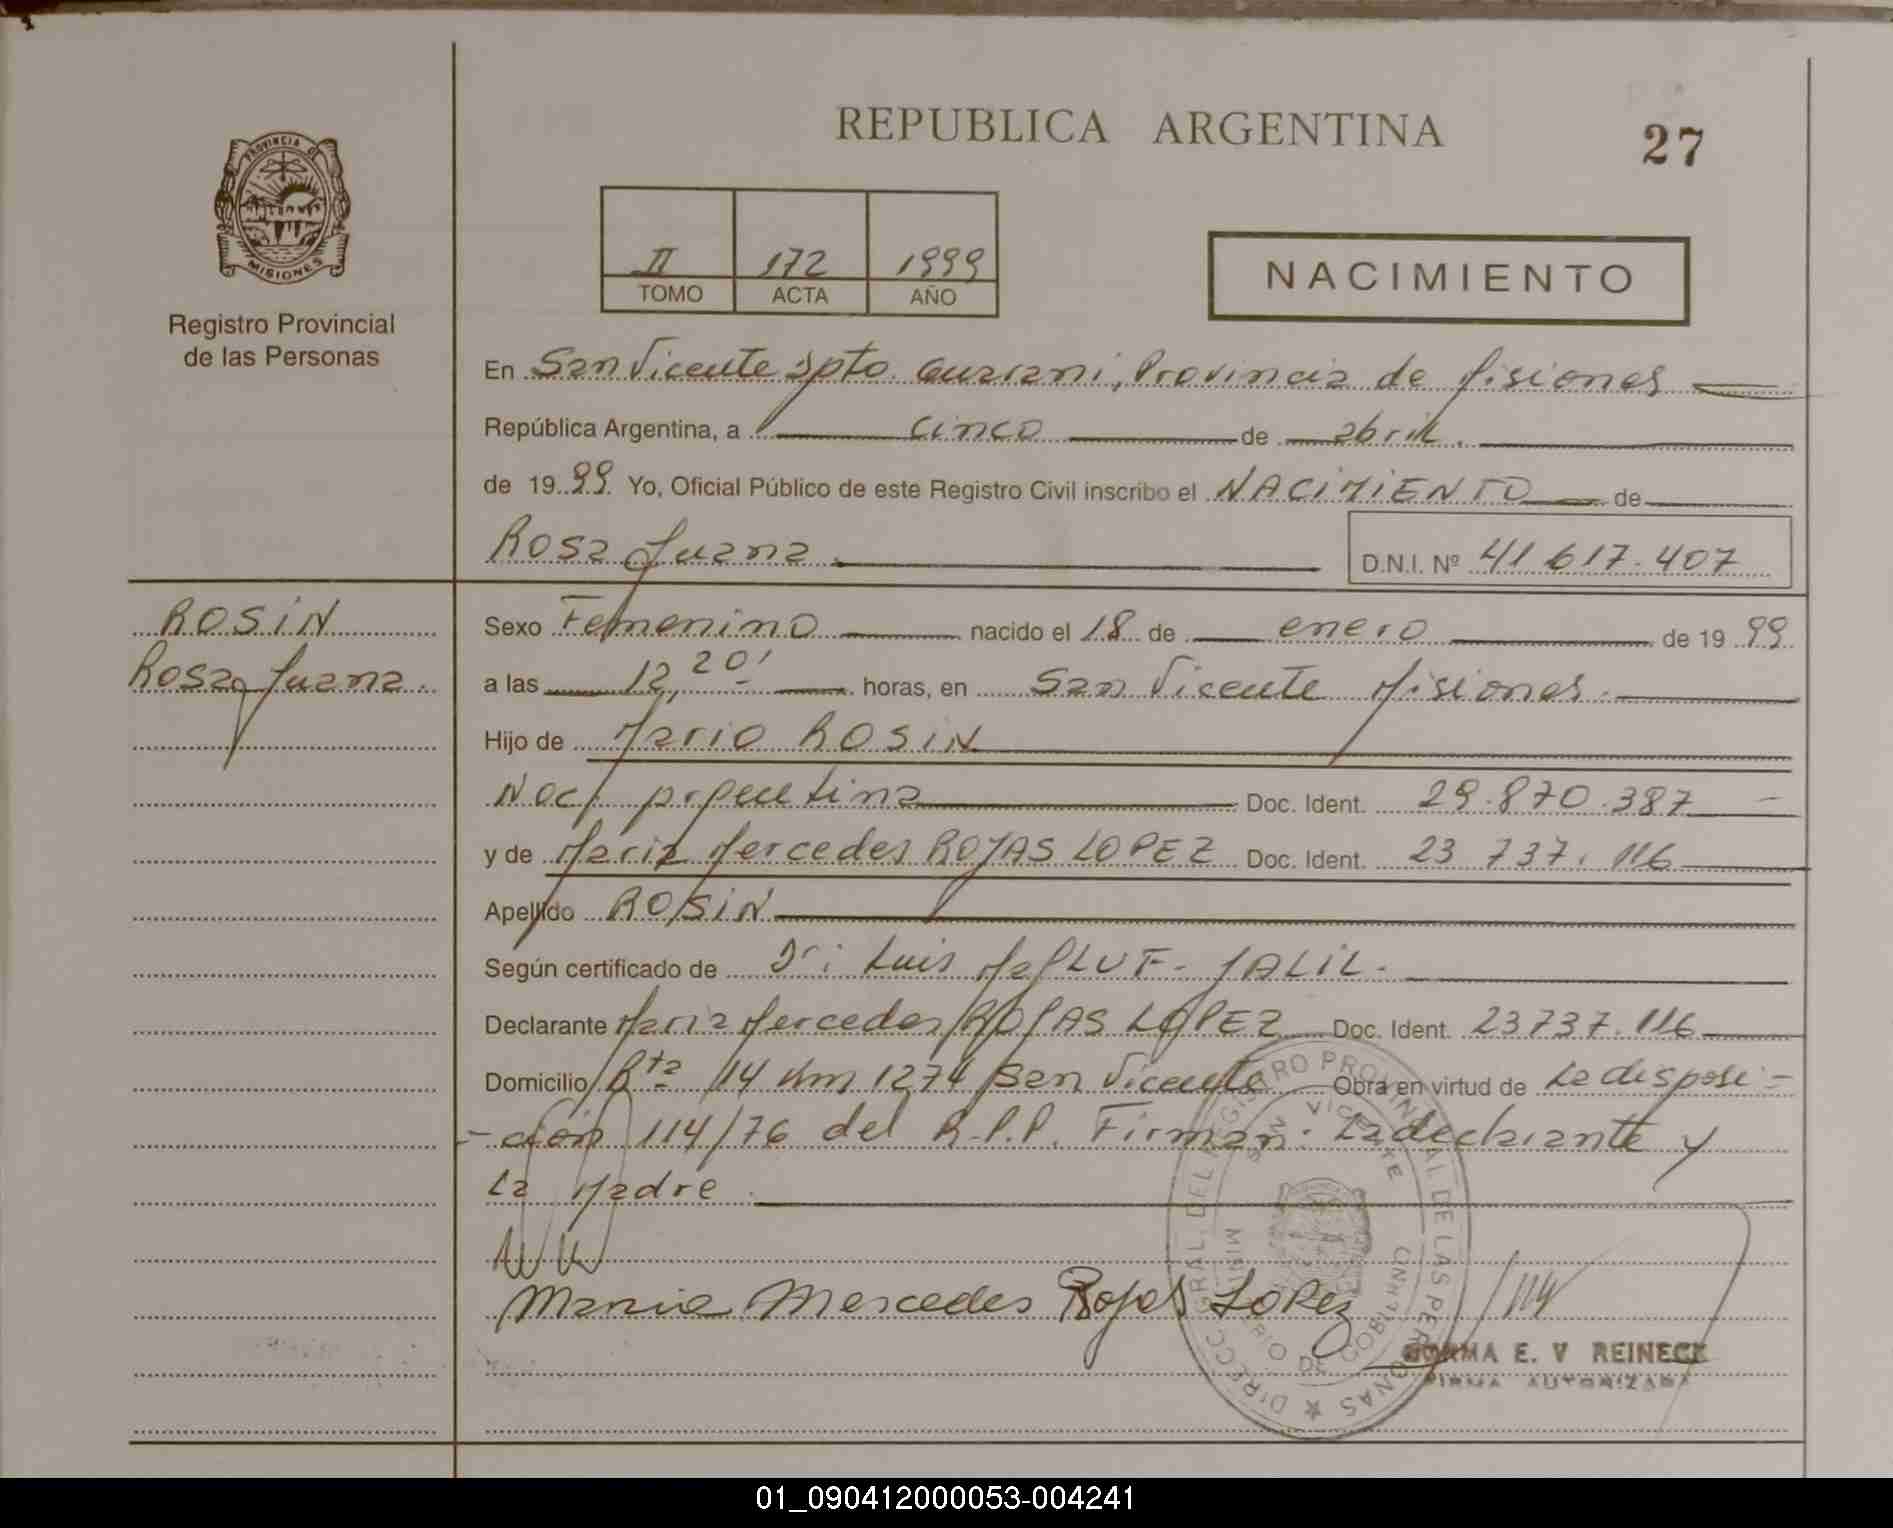 REPUBLICA ARGENTINA
27
PROVINCIA DE
MISIONES
Registro Provincial
de las Personas
II 172 1999
TOMO ACTA AÑO
NACIMIENTO
En San Vicente Dpto. Guarani, Provincia de Misiones
República Argentina, a cinco de abril.
de 1999 Yo, Oficial Público de este Registro Civil inscribo el NACIMIENTO de
Rosa Juana.
D.N.I. Nº 41 617.407
ROSIN
Rosa Juana.
Sexo Femenino nacido el 18 de enero de 1999
a las 12,20' horas, en San Vicente Misiones.
Hijo de Mario ROSIN
Nac. argentina Doc. Ident. 29.870.387
y de Maria Mercedes ROJAS LOPEZ Doc. Ident. 23 737.116
Apellido ROSIN
Según certificado de Dr: Luis JALIL.
Declarante Maria Mercedes ROJAS LOPEZ Doc. Ident. 23737.116
Domicilio Rta 14 Km 1274 San Vicente Obra en virtud de La disposi-
-ción 114/76 del R.P.P. Firman: La declarante y
La Madre.
Maria Mercedes Rojas Lopez
DIRECC. GRAL. DEL REGISTRO PROVINCIAL DE LAS PERSONAS
SAN VICENTE
MINISTERIO DE GOBIERNO
NORMA E. V REINECK
FIRMA AUTORIZADA
01_090412000053-004241